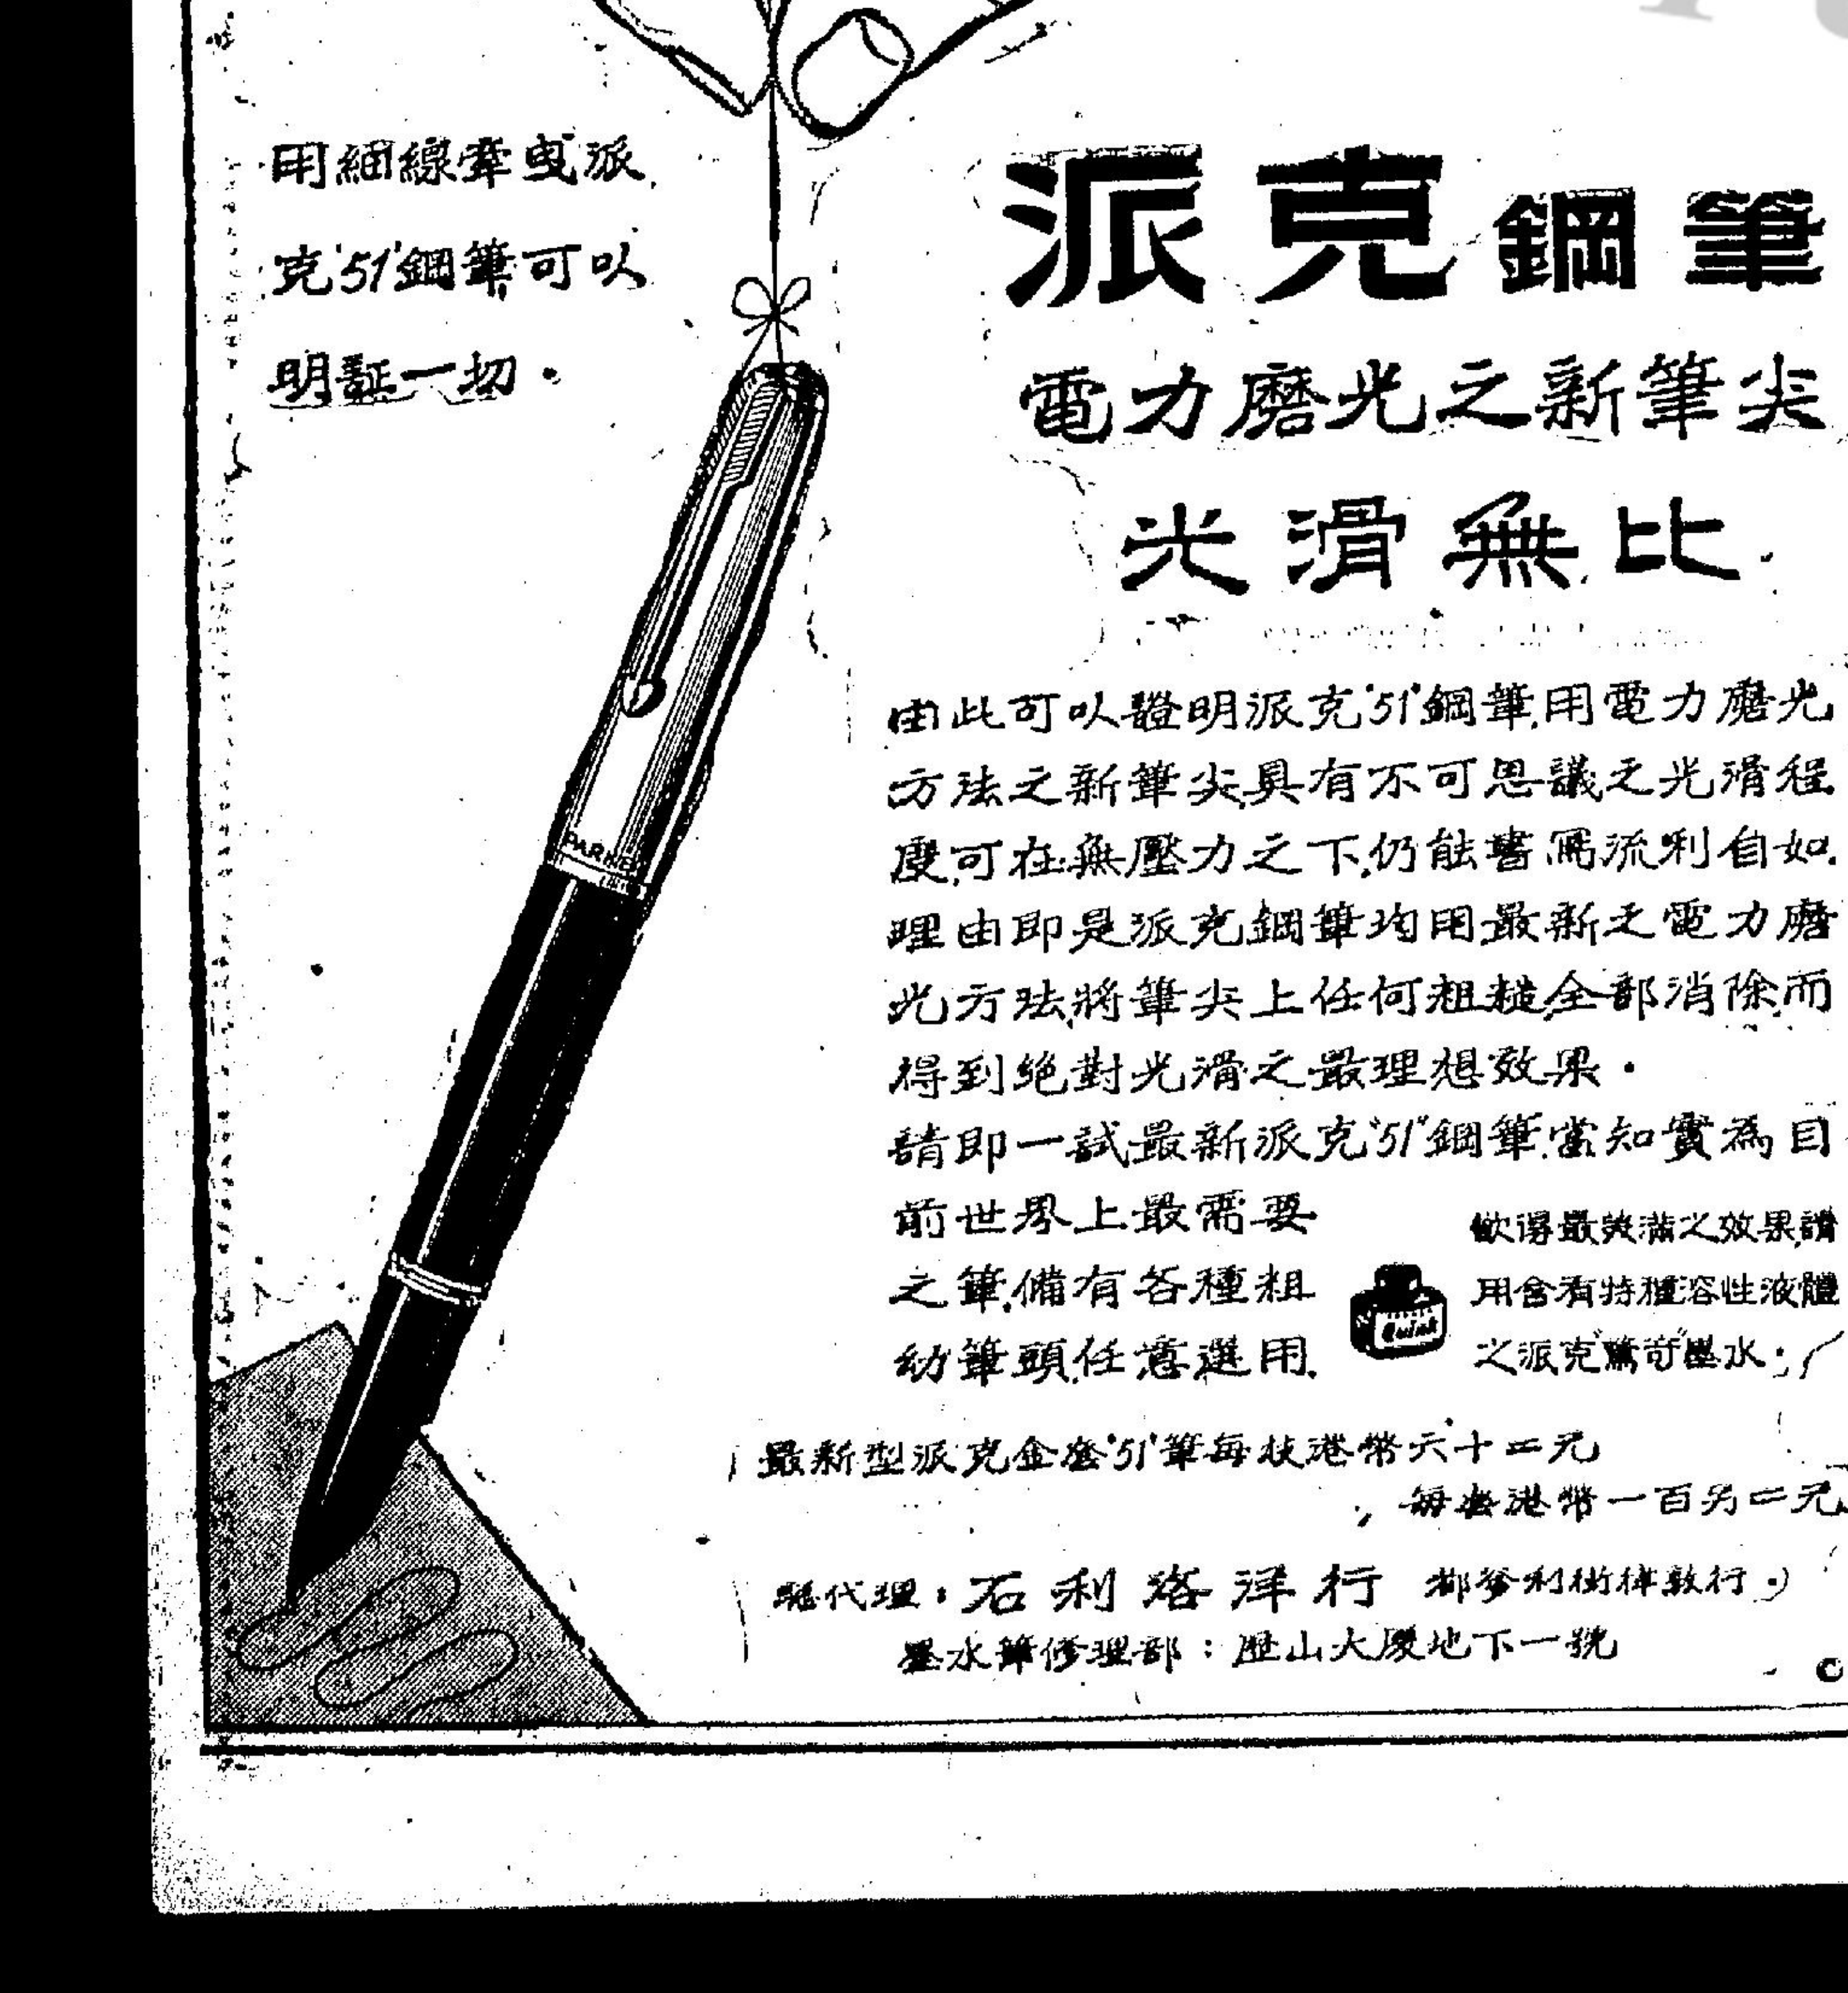 用細線牽曳派
克'51'鋼筆可以
明証一切·
派克鋼筆
電力磨光之新筆尖
光滑無比
由此可以證明派克'51'鋼筆,用電力磨光
方法之新筆尖,具有不可思議之光滑程
度,可在無壓力之下,仍能書寫流利自如.
理由即是派克鋼筆均用最新之電力磨
光方法,將筆尖上任何粗糙,全部消除,而
得到絶對光滑之最理想效果·
請即一試最新派克"51"鋼筆,當知實為目
前世界上最需要
之筆,備有各種粗
幼筆頭,任意選用.
欲得最美滿之效果,請
用含有特種溶性液體
之派克"驚奇"墨水·
PARKER
Quink
最新型派克金套'51'筆每枝港幣六十二元
每套港幣一百另二元
總代理:石利洛洋行 都爹利街律敦行·
墨水筆修理部:歷山大廈地下一號